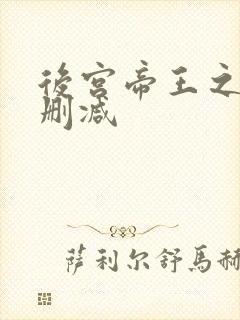 後宫帝王之
删减
萨利尔舒馬赫